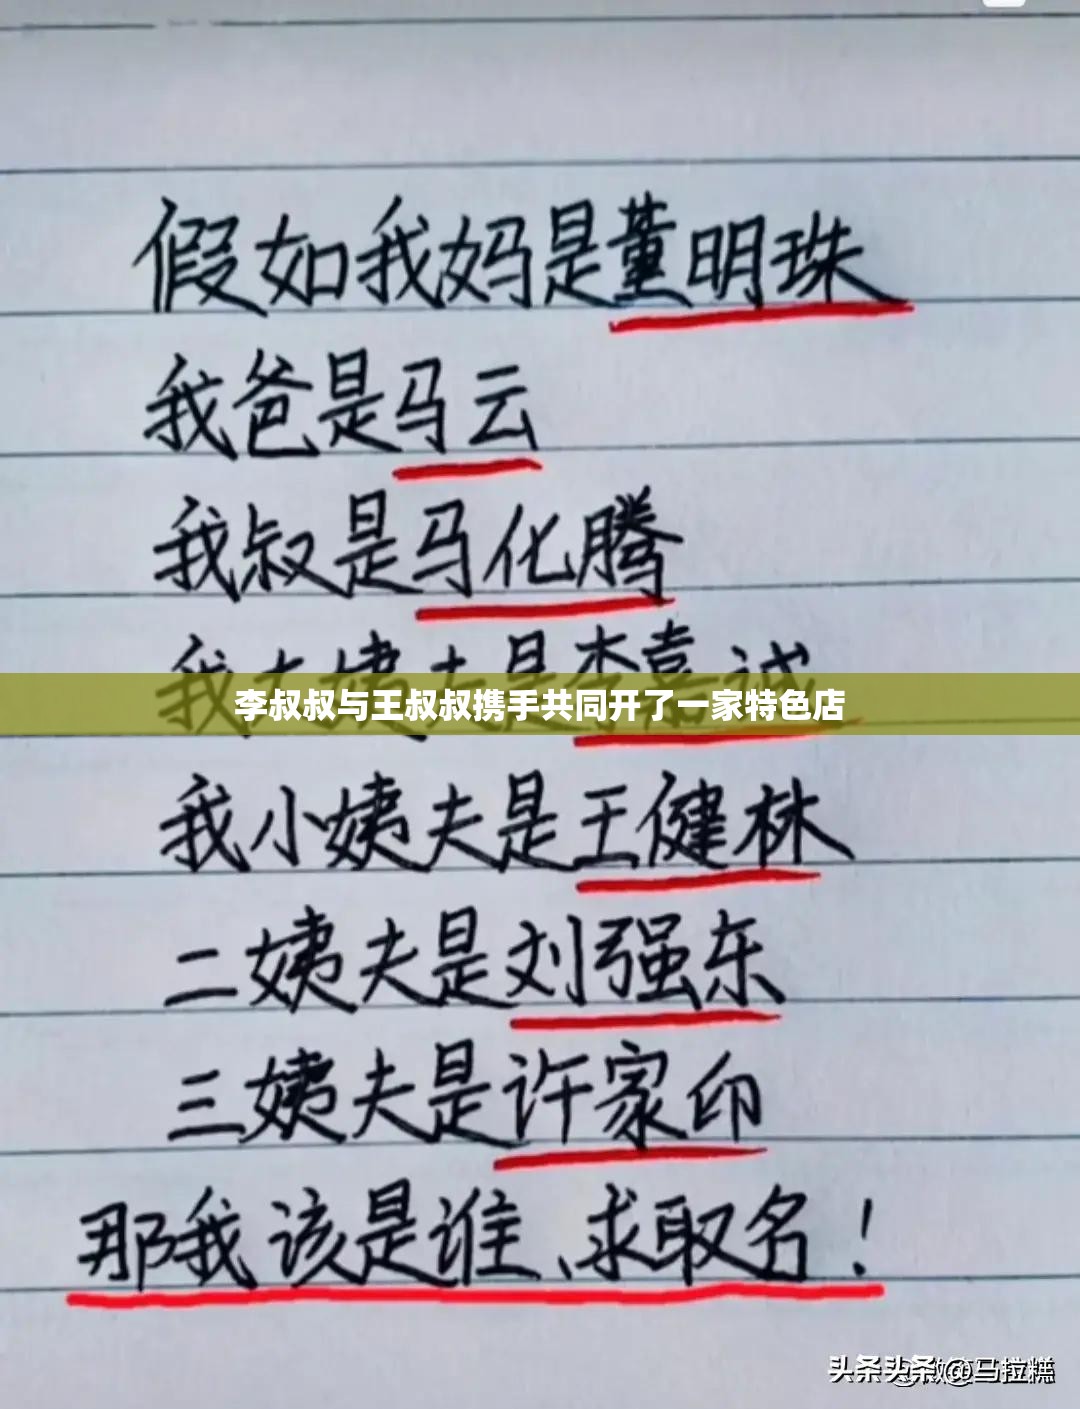 假如我妈是董明珠
我爸是马云
我叔是马化腾
我大姨夫是李嘉诚
李叔叔与王叔叔携手共同开了一家特色店
我小姨夫是王健林
二姨夫是刘强东
三姨夫是许家印
那我该是谁、求取名!
头条头条@马拉糕